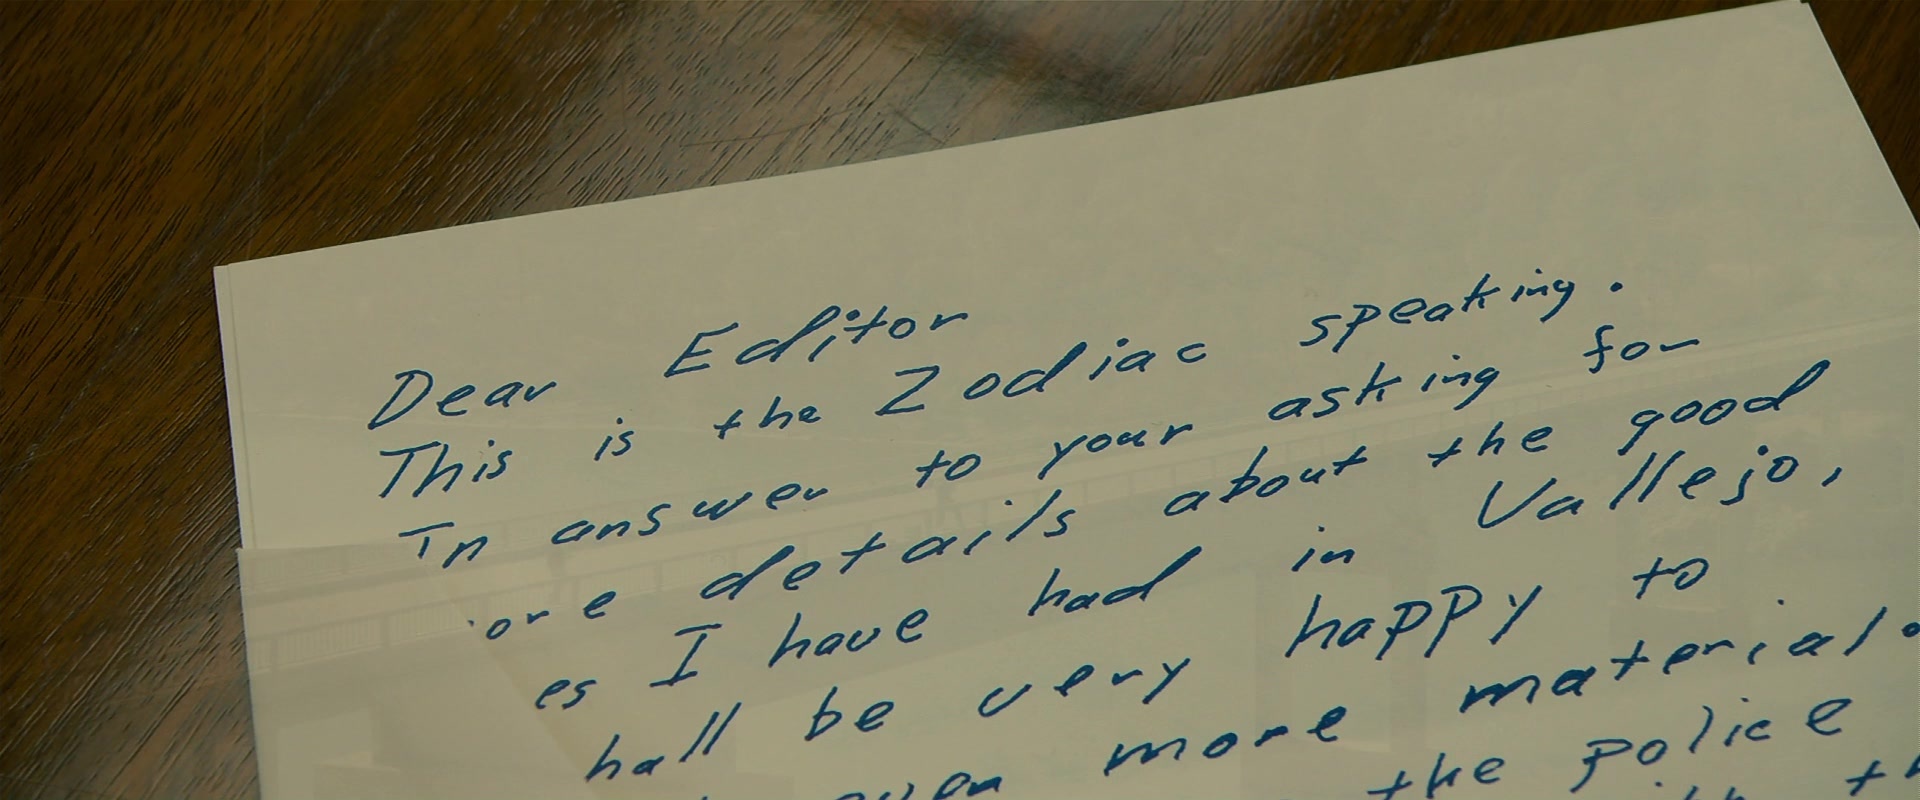 Dear Editor
This is the Zodiac speaking.
In answer to your asking for
ore details about the good
es I have had in Vallejo,
hall be very happy to
even more material.
the police